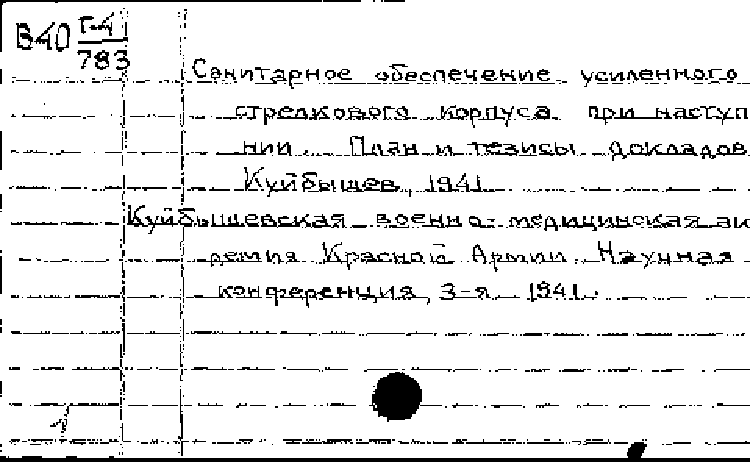 В40 Г-4
783
Санитарное обеспечение усиленного
стрелкового корпуса при наступ
нии. План и тезисы докладов
Куйбышев, 1941.
Куйбышевская военно-медицинская ак
демия Красной Армии. Научная
конференция, 3-я. 1941.
1